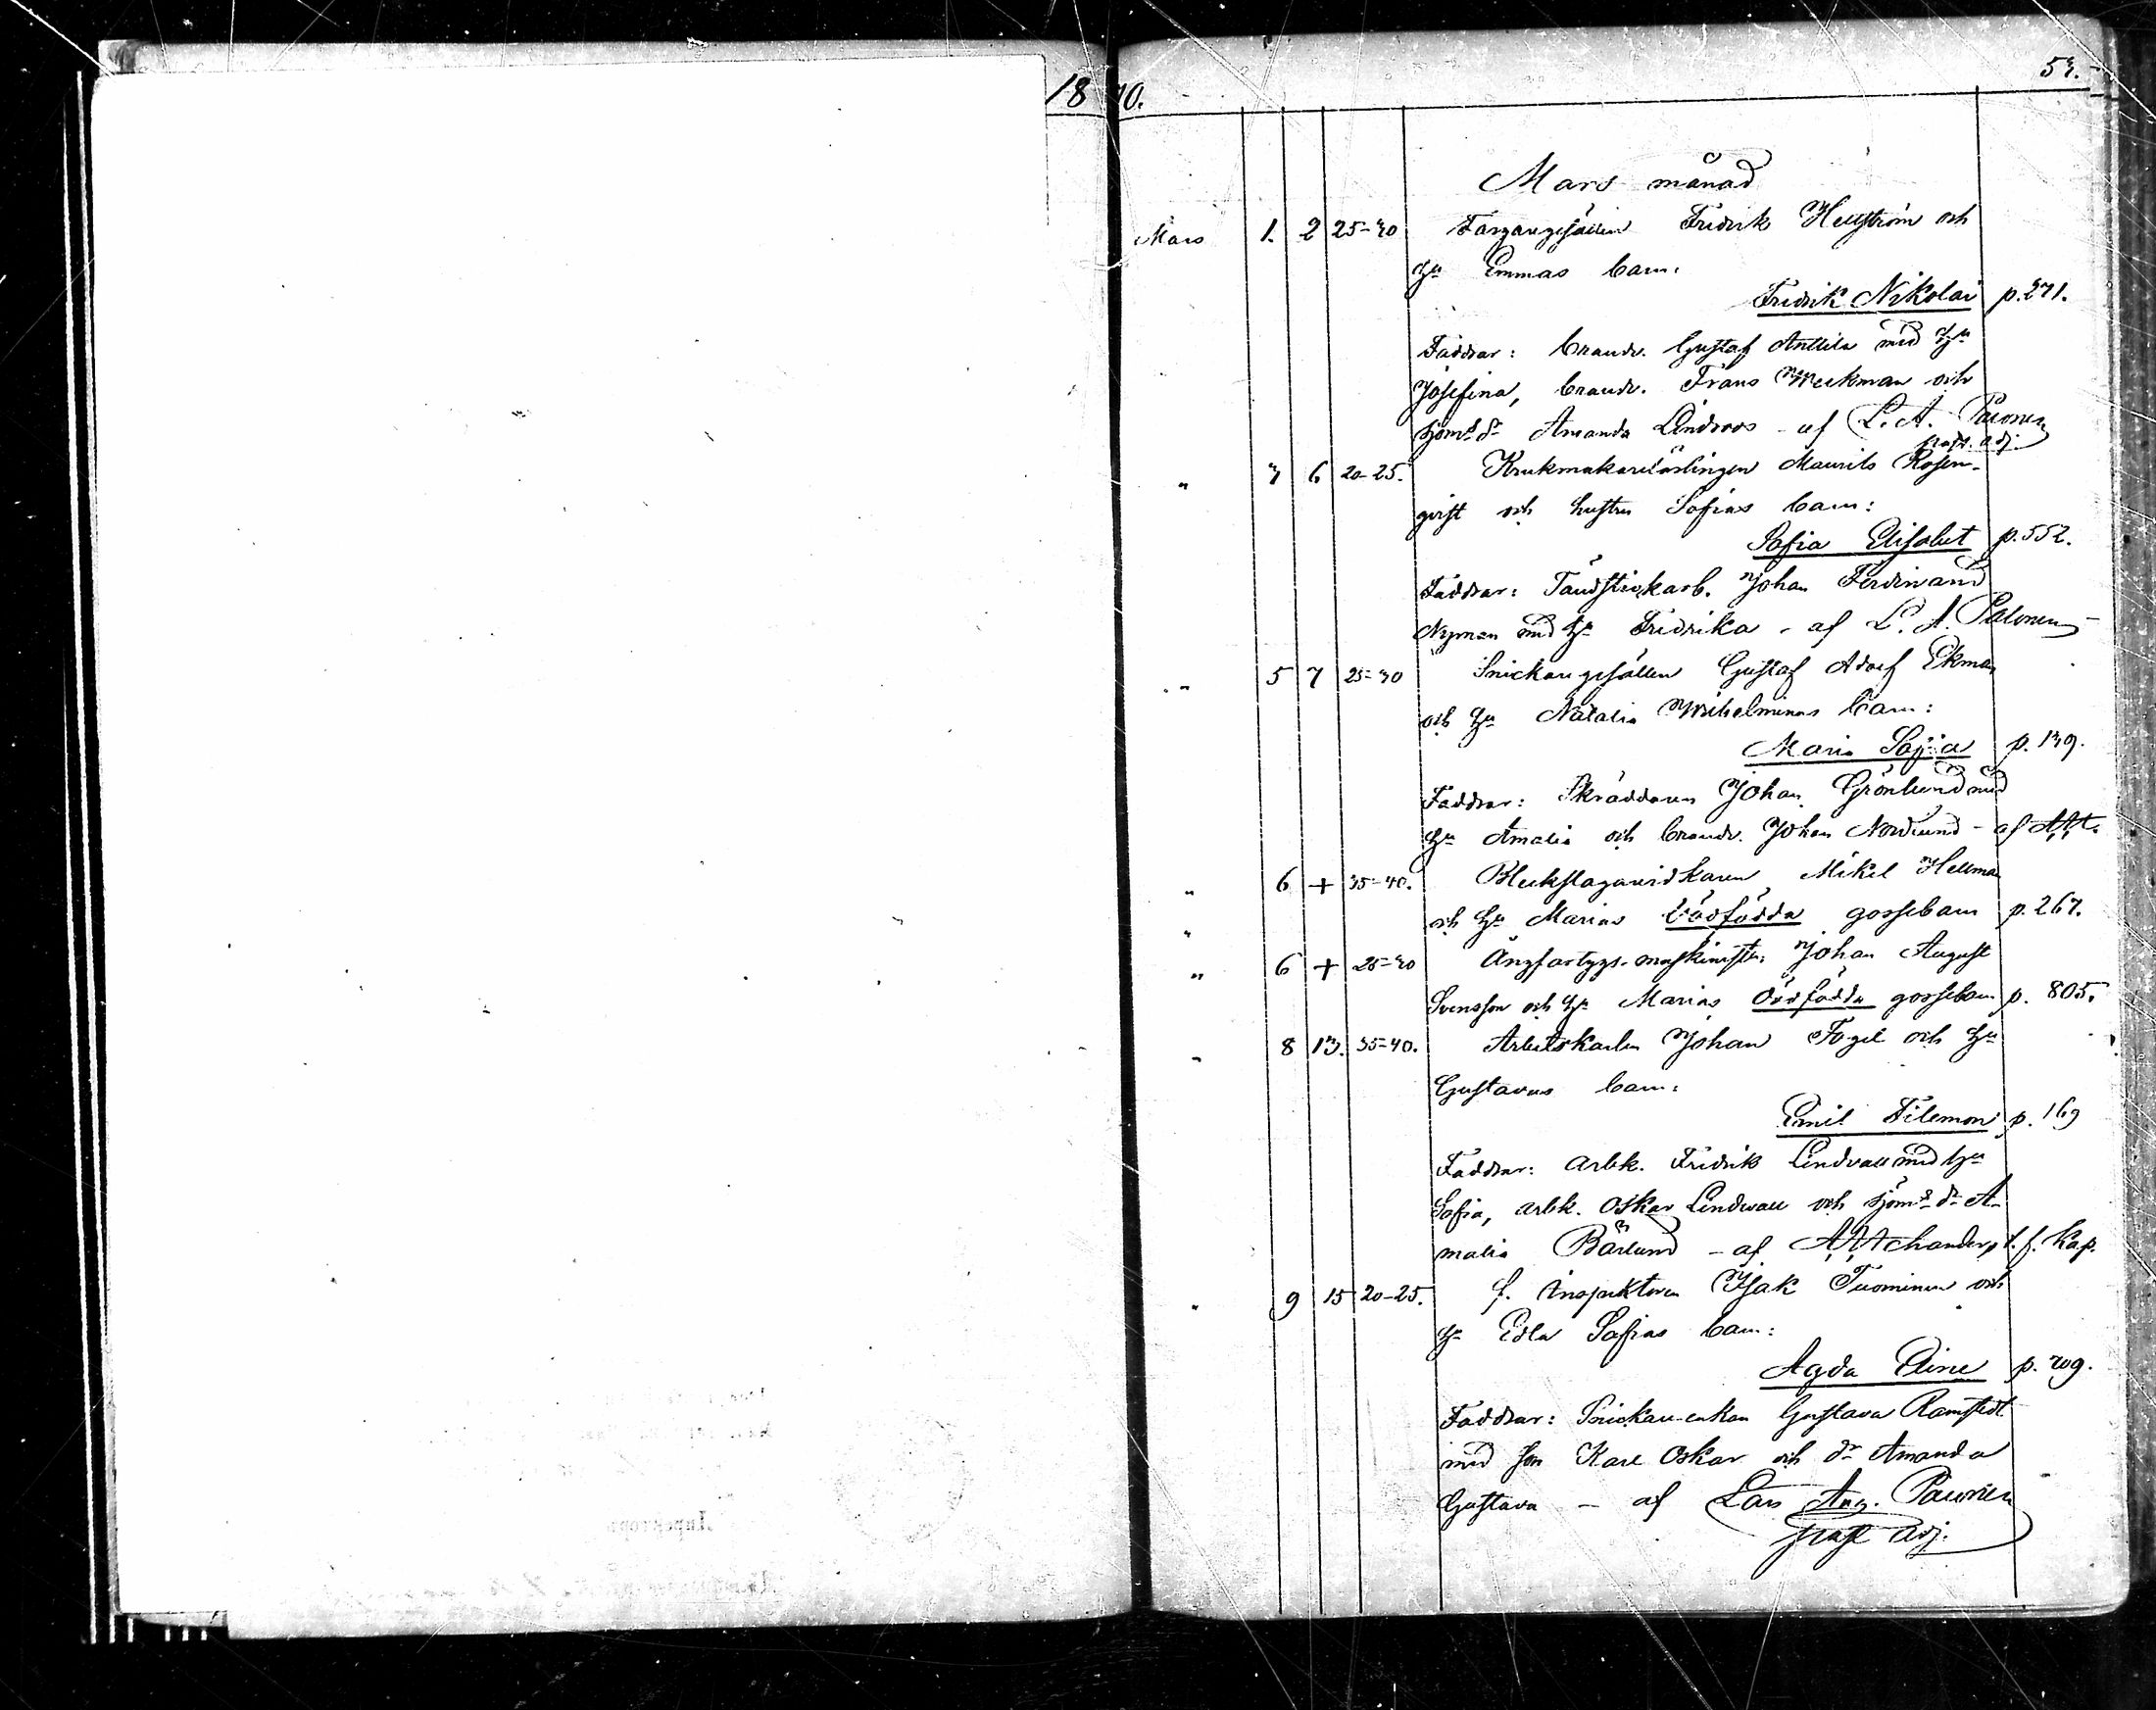 18 70.
53.
Mars månad
Mars 1. 2 25-30 Färgaregesällen Fredrik Hellström och
hu Emmas barn:
Fredrik Nikolai p. 271.
Faddrar: brandv. Gustaf Anttila med hu
Josefina, brandv. Frans Weckman och
sjöms dr Amanda Lindroos - af L. A. Palonen
past. adj.
" 3 6 20-25. Krukmakarelärlingen Maurits Rosen-
qvist och hustru Sofias barn:
Sofia Elisabet p. 552.
Faddrar: Tändstickarb. Johan Ferdinand
Nyman med hu Fredrika - af L. A. Palonen
" 5 7 25-30 Snickaregesällen Gustaf Adolf Ekman
och hu Natalia Wilhelminas barn:
Maria Sofia p. 139.
Faddrar: Skräddaren Johan Grönlund med
hu Amalia och brandv. Johan Nordlund - af
" 6 + 35-40. Bleckslagarevidkaren Mikel Hellman
och hu Marias dödfödda gossebarn p. 267.
" 6 + 25-30 Ångfartygs-maskinisten Johan August
Svensson och hu Marias dödfödda gossebarn p. 805.
" 8 13. 35-40. Arbetskarlen Johan Fogel och hu
Gustavas barn:
Emil Filemon p. 169
Faddrar: arbk. Fredrik Lindvall med hu
Sofia, arbk. Oskar Lindwall och sjöms dr A-
malia Bärlund - af t. f. Kap.
" 9 15 20-25. f. inspektoren Isak Tuominen och
hu Edla Sofias barn:
Agda Eline p. 709.
Faddrar: Snickare-enkan Gustava Ramstedt
med son Karl Oskar och dr Amanda
Gustava - af Lars Aug. Palonen
past adj.